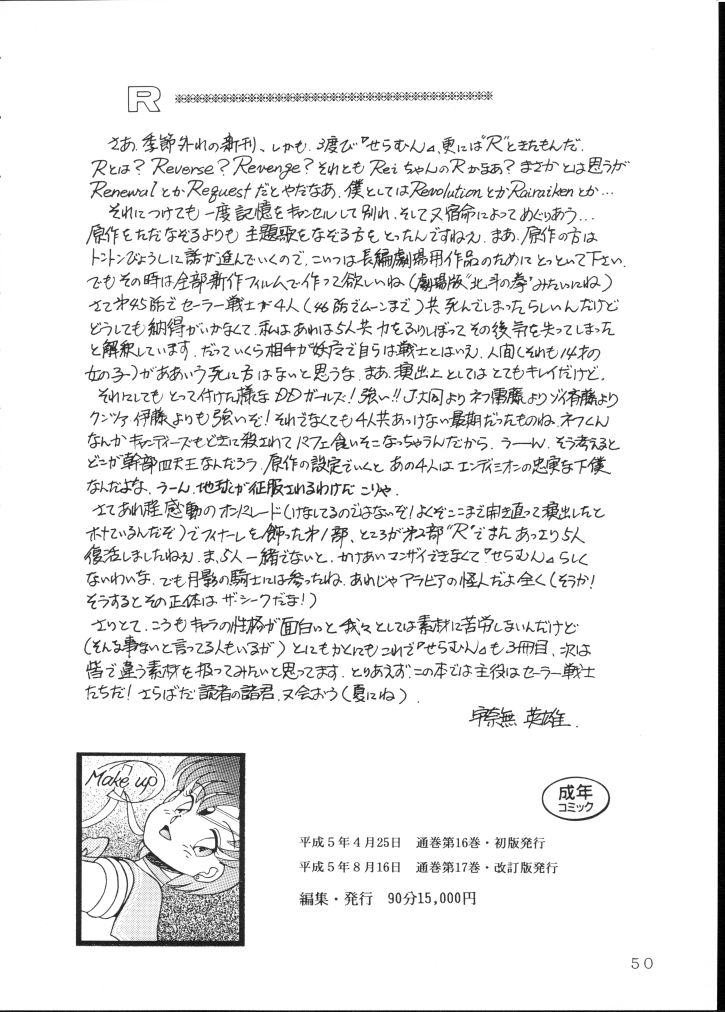 R
さあ、季節外れの新刊、しかも、3度び『せらむん』、更には"R"ときたもんだ。
Rとは？Reverse？Revenge？それとも ReiちゃんのRかなあ？まさかとは思うが
RenewalとかRequestだとやだなあ。僕としてはRevolutionとかRairaikenとか…
それにつけても一度記憶をキャンセルして別れ、そして又宿命によってめぐりあう…
原作をただなぞるよりも主題歌をなぞる方をとったんですねえ。まあ、原作の方は
トントンびょうしに話が進んでいくので、こいつは長編劇場用作品のためにとっといて下さい。
でもその時は全部新作フィルムで作って欲しいね(劇場版"北斗の拳"みたいにね)
さて第45話でセーラー戦士が4人(46話でムーンまで)共死んでしまったらしいんだけど
どうしても納得がいかなくて、私はあれは5人共力をふりしぼってその後気を失ってしまった
と解釈しています。だっていくら相手が妖魔で自らは戦士とはいえ、人間(それも14才の
女の子)がああいう死に方はないと思うな。まあ、演出上としてはとてもキレイだけど。
それにしてもとって付けた様なDDガールズ！強い!!J大同よりネフ雷藤よりゾイ斉藤より
クンツァ伊藤よりも強いぞ！それでなくても4人共あっけない最期だったものね。ネフくん
なんかキャンディーズもどきに殺されてパフェ食いそこなっちゃうんだから。うーん、そう考えると
どこが幹部四天王なんだろう。原作の設定でいくとあの4人はエンディミオンの忠実な下僕
なんだよな、うーん、地球が征服されるわけだ こりゃ。
さてあれ程感動のオンパレード(けなしてるのではないぞ！よくぞここまで開き直って演出したと
ホメているんだぞ)でフィナーレを飾った第1部、ところが第2部"R"でまたあっさり5人
復活しましたねえ。ま、5人一緒でないと、かけあいマンザイできなくて『せらむん』らしく
ないわいな。でも月影の騎士には参ったね。あれじゃアラビアの怪人だよ全く(そうか！
そうするとその正体はザ・シークだな！)
さりとて、こうもキャラの性格が面白いと我々としては素材に苦労しないんだけど
(そんな事ないと言ってる人もいるが)とにもかくにもこれで『せらむん』も3冊目、次は
皆で違う素材を扱ってみたいと思ってます。とりあえず、この本では主役はセーラー戦士
たちだ！さらばだ読者の諸君、又会おう(夏にね)
宇奈無 英雄
Make up
成年
コミック
平成5年4月25日 通巻第16巻・初版発行
平成5年8月16日 通巻第17巻・改訂版発行
編集・発行 90分15,000円
50